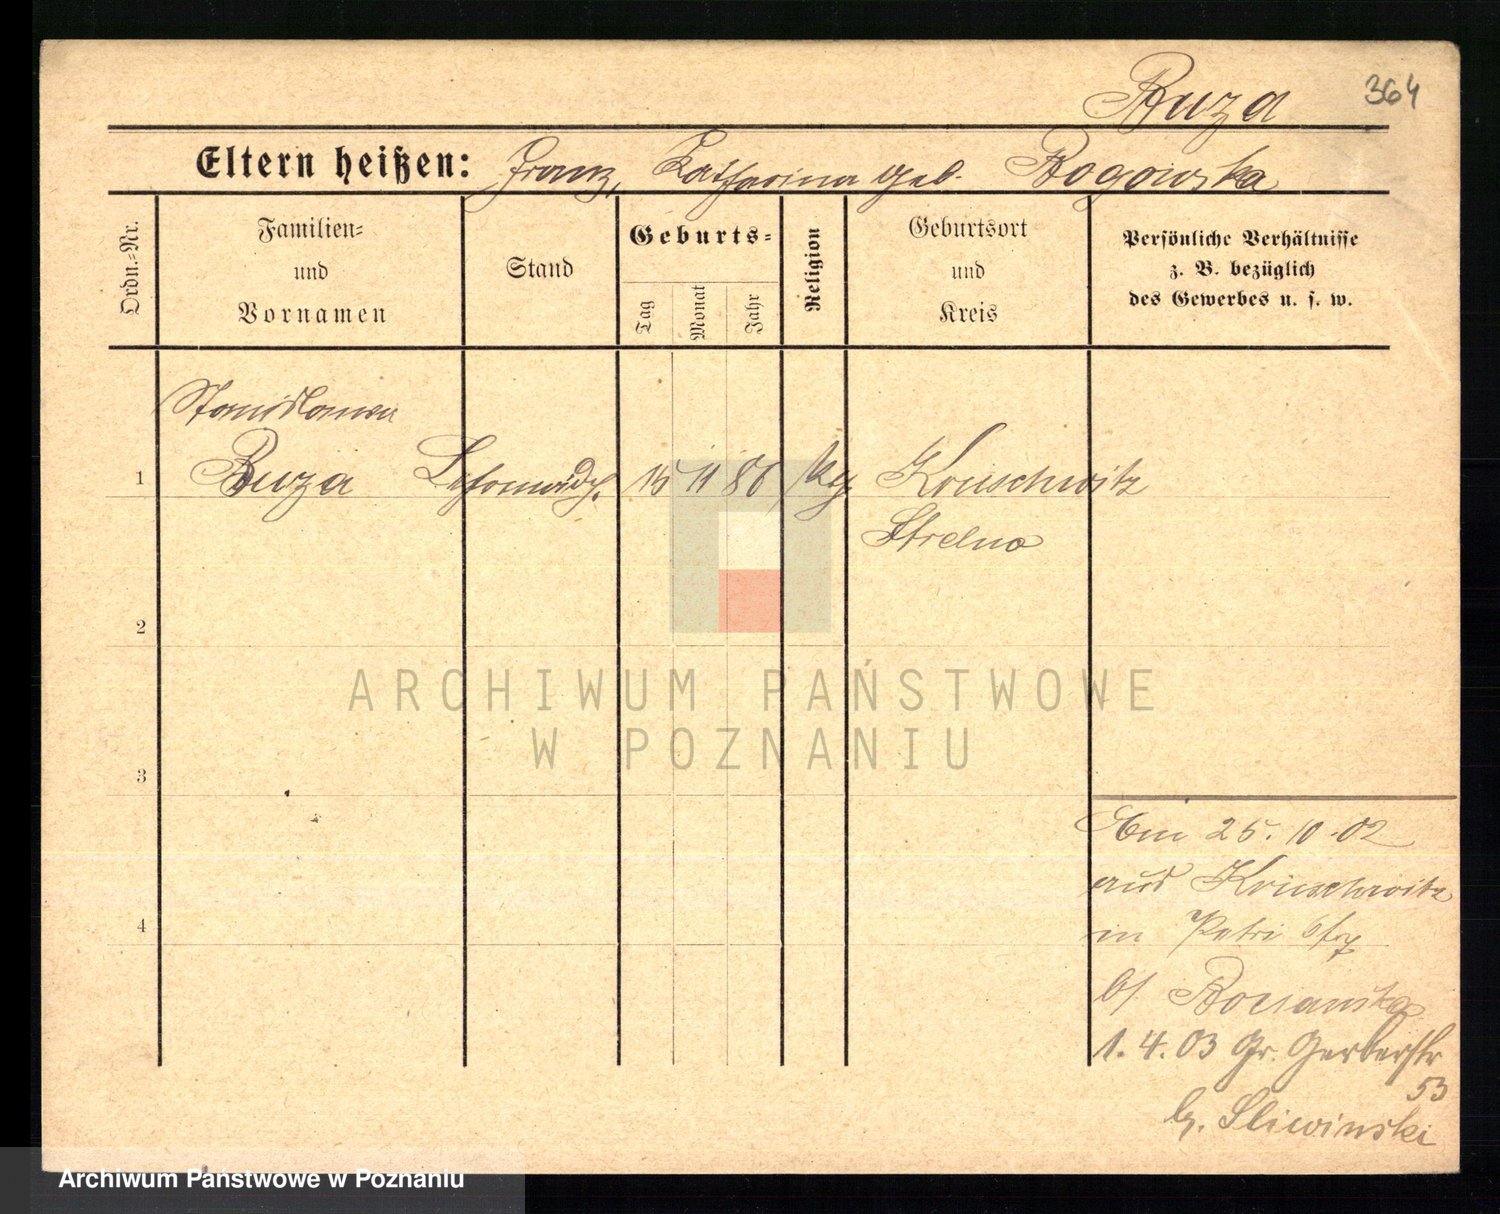 Buza
364
Eltern heißen: Franz, Katharina geb. Rogowska
Ordn.-Nr.
Familien-
und
Vornamen
Stand
Geburts-
Tag
Monat
Jahr
Religion
Geburtsort
und
Kreis
Persönliche Verhältnisse
z. B. bezüglich
des Gewerbes u. s. w.
Stanislawa
1 Buza 15 11 86 kg Kruschwitz
Strelno
2
3
4
Am 25. 10. 02
aus Kruschwitz
in Petri
b/
1. 4. 03 Gr. Gerberstr
53
b. Sliwinski
ARCHIWUM PAŃSTWOWE
W POZNANIU
Archiwum Państwowe w Poznaniu